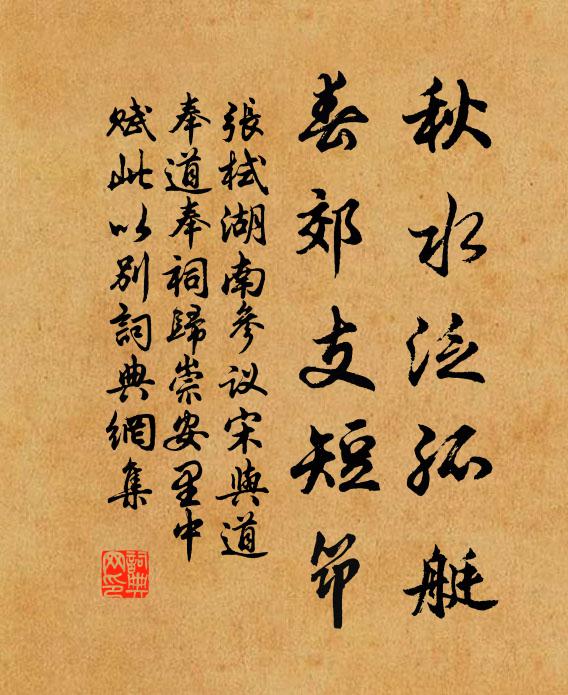 秋水泛孤艇
春郊支短筇
張栻湖南參议宋與道
奉道奉祠歸崇安里中
赋此以别詞典網集
詞典網印